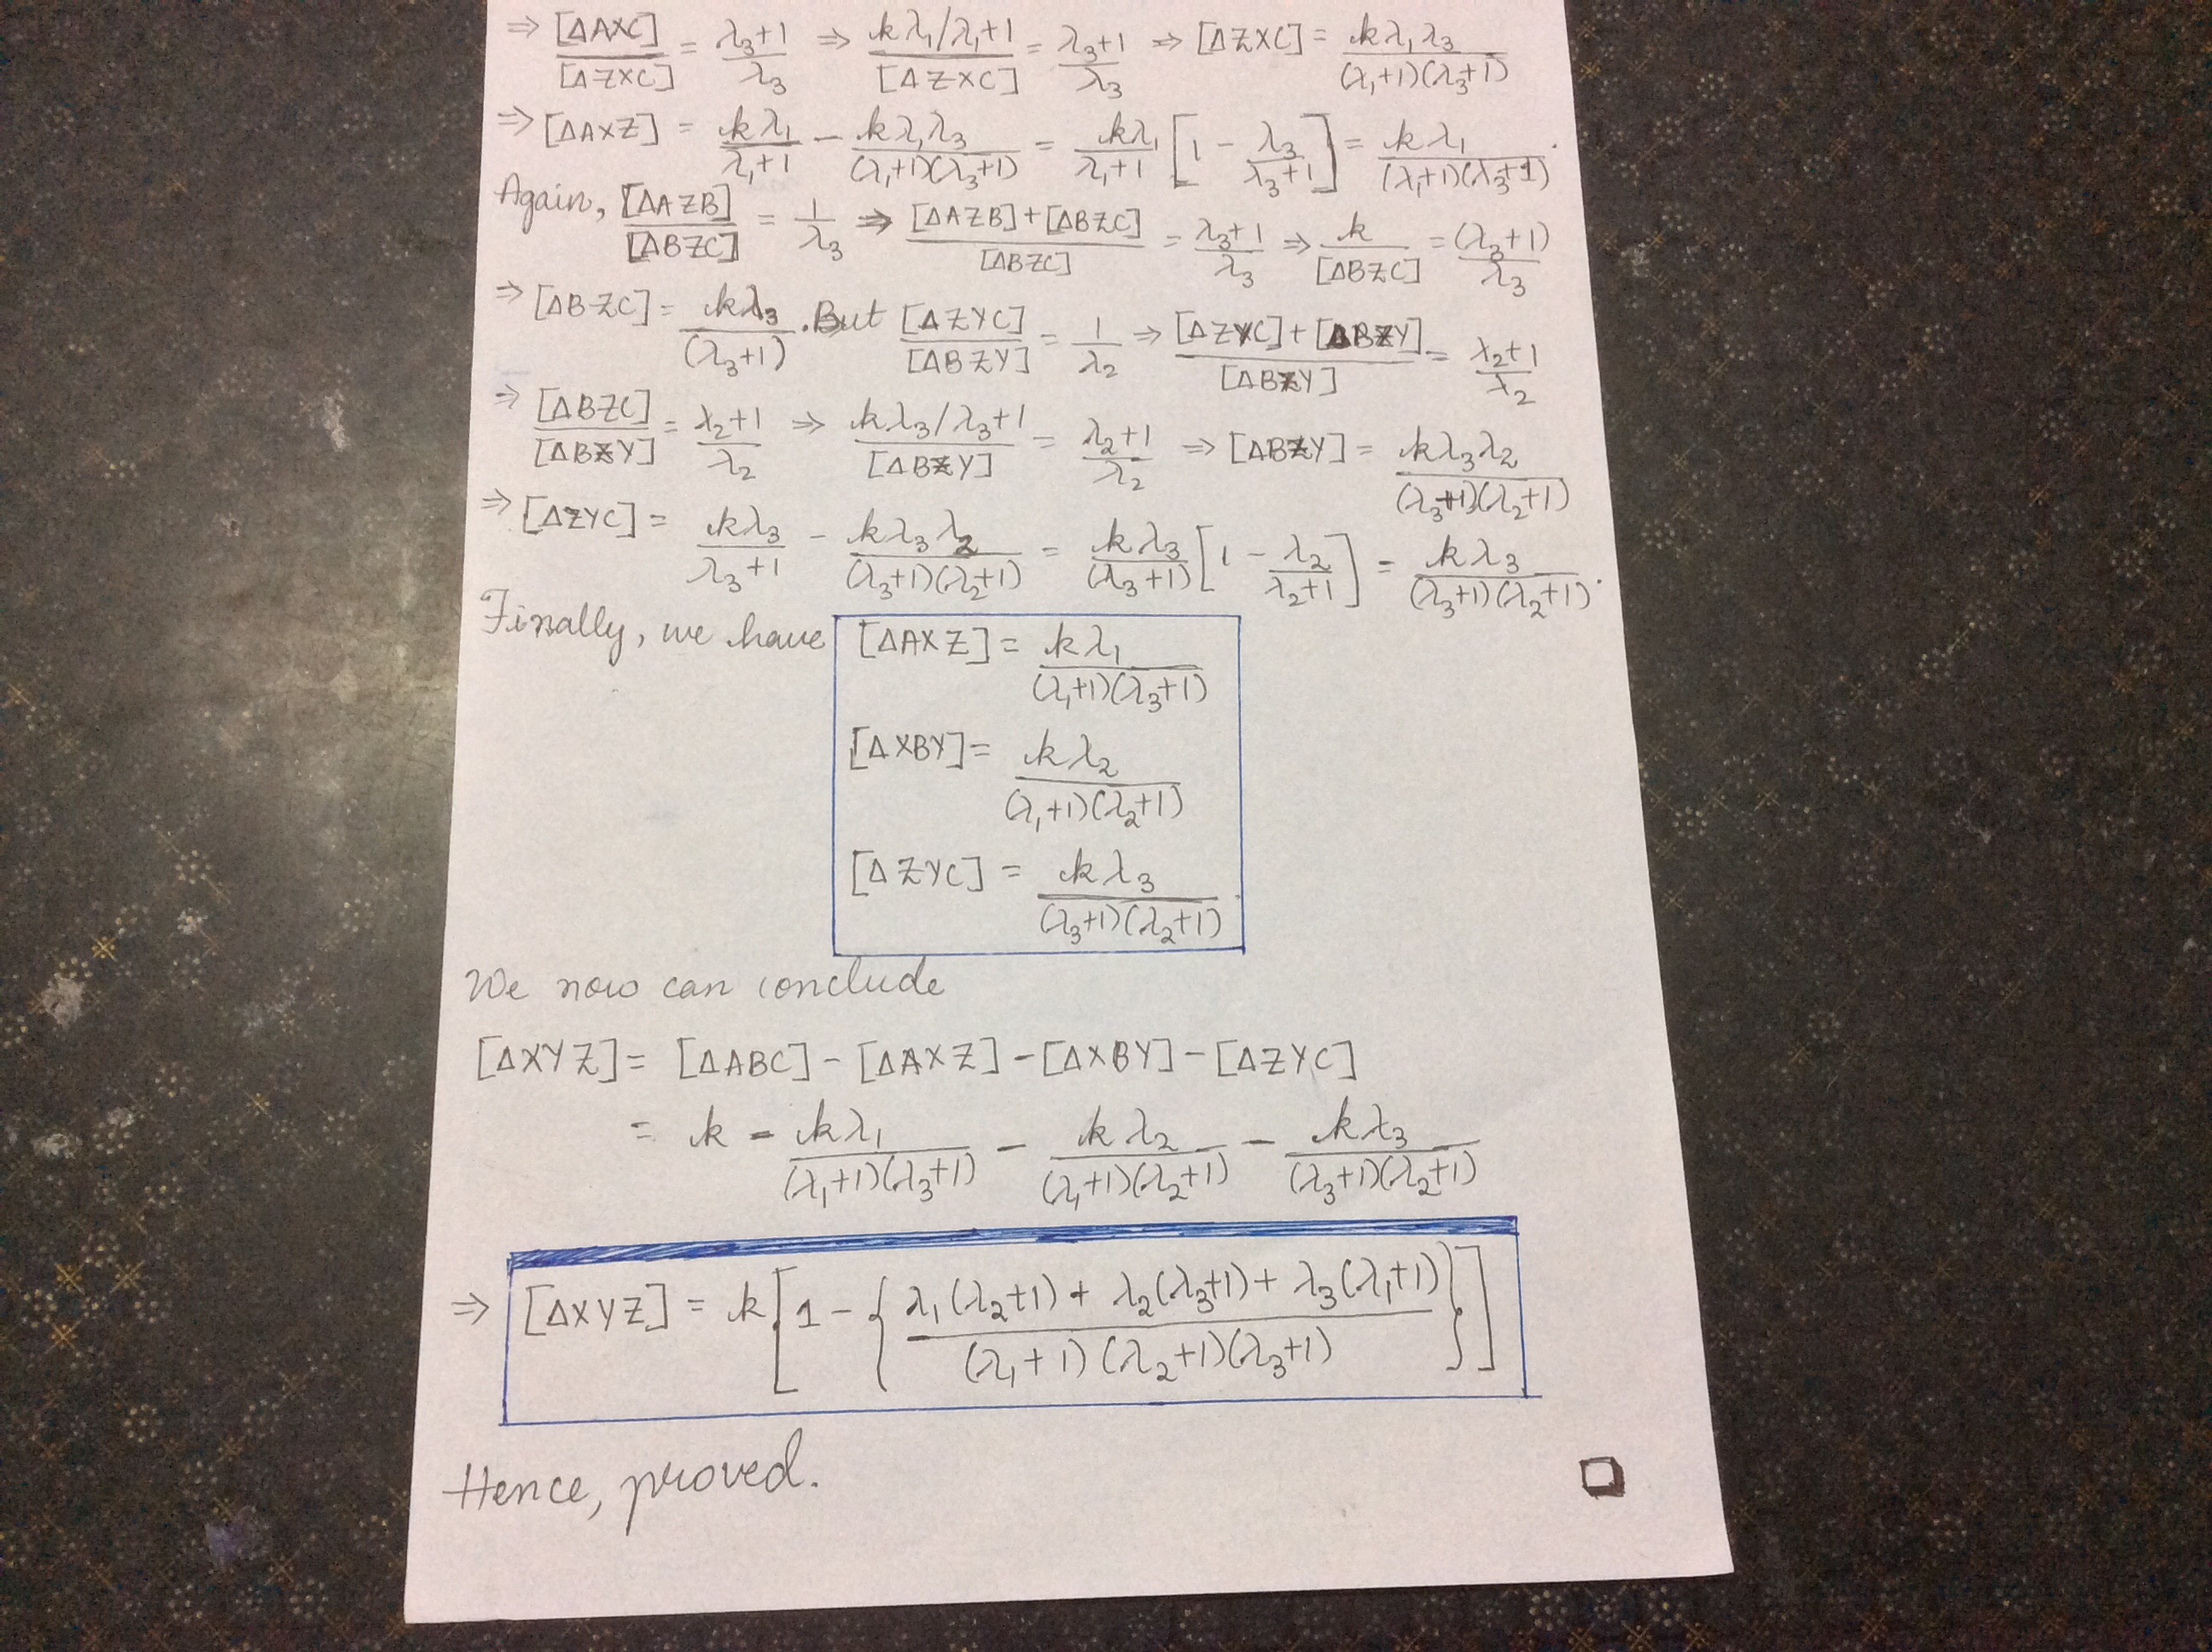 ⇒ [ΔAXC]/[ΔZXC] = (λ₃+1)/λ₃ ⇒ (kλ₁/λ₁+1)/[ΔZXC] = (λ₃+1)/λ₃ ⇒ [ΔZXC] = kλ₁λ₃/(λ₁+1)(λ₃+1)
⇒ [ΔAXZ] = kλ₁/(λ₁+1) − kλ₁λ₃/(λ₁+1)(λ₃+1) = kλ₁/(λ₁+1) [1 − λ₃/(λ₃+1)] = kλ₁/(λ₁+1)(λ₃+1).
Again, [ΔAZB]/[ΔBZC] = 1/λ₃ ⇒ ([ΔAZB]+[ΔBZC])/[ΔBZC] = (λ₃+1)/λ₃ ⇒ k/[ΔBZC] = (λ₃+1)/λ₃
⇒ [ΔBZC] = kλ₃/(λ₃+1). But [ΔZYC]/[ΔBZY] = 1/λ₂ ⇒ ([ΔZYC]+[ΔBZY])/[ΔBZY] = (λ₂+1)/λ₂
⇒ [ΔBZC]/[ΔBZY] = (λ₂+1)/λ₂ ⇒ (kλ₃/λ₃+1)/[ΔBZY] = (λ₂+1)/λ₂ ⇒ [ΔBZY] = kλ₃λ₂/(λ₃+1)(λ₂+1)
⇒ [ΔZYC] = kλ₃/(λ₃+1) − kλ₃λ₂/(λ₃+1)(λ₂+1) = kλ₃/(λ₃+1) [1 − λ₂/(λ₂+1)] = kλ₃/(λ₃+1)(λ₂+1).
Finally, we have [ΔAXZ] = kλ₁/(λ₁+1)(λ₃+1)
[ΔXBY] = kλ₂/(λ₁+1)(λ₂+1)
[ΔZYC] = kλ₃/(λ₃+1)(λ₂+1)
We now can conclude
[ΔXYZ] = [ΔABC] − [ΔAXZ] − [ΔXBY] − [ΔZYC]
= k − kλ₁/(λ₁+1)(λ₃+1) − kλ₂/(λ₁+1)(λ₂+1) − kλ₃/(λ₃+1)(λ₂+1)
⇒ [ΔXYZ] = k[1 − {(λ₁(λ₂+1) + λ₂(λ₃+1) + λ₃(λ₁+1))/(λ₁+1)(λ₂+1)(λ₃+1)}]
Hence, proved. □